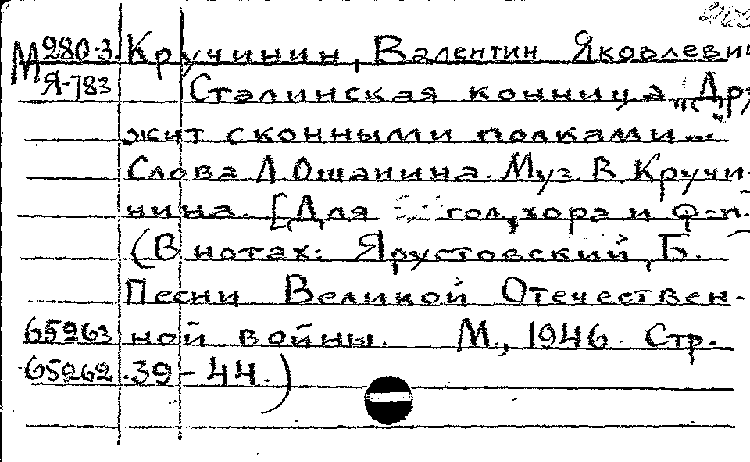 М 280-3 Кручинин, Валентин Яковлевич
Я-783 Сталинская конница. „Др
жит с конными полками..."
Слова Л. Ошанина. Муз. В. Кручи-
нина. [Для гол., хора и ф-п.
(В нотах: Ярустовский, Б.
Песни Великой Отечествен-
65963 ной войны. М., 1946. Стр.
65962 39-44.)